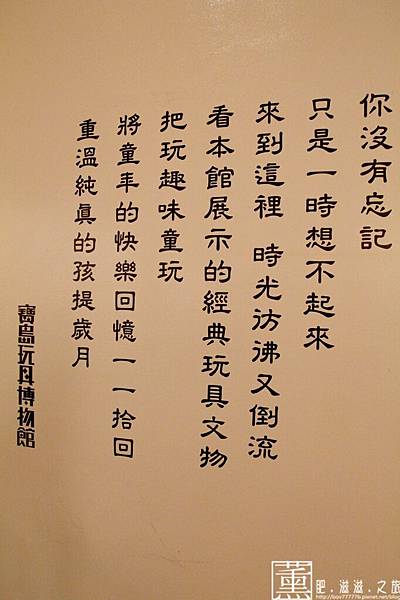 你沒有忘記
只是一時想不起來
來到這裡 時光彷彿又倒流
看本館展示的經典玩具文物
把玩趣味童玩
將童年的快樂回憶一一拾回
重溫純真的孩提歲月
寶島玩具博物館
薰 肥.滋滋.之旅